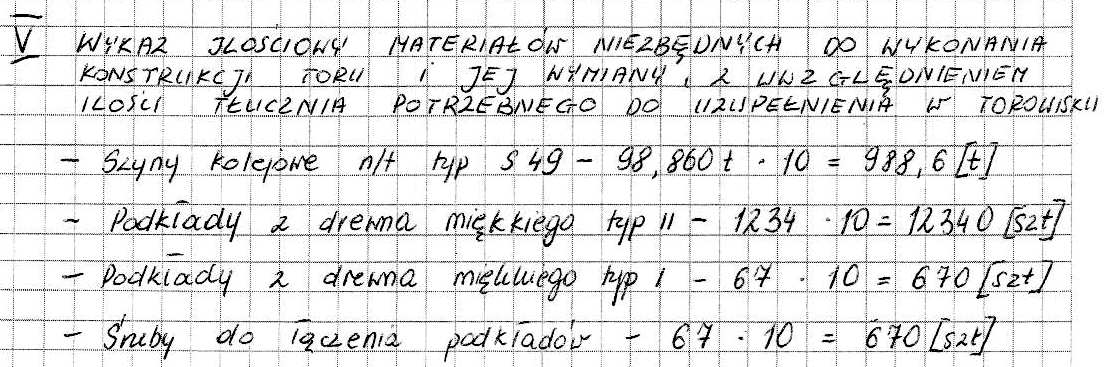 V WYKAZ ILOŚCIOWY MATERIAŁÓW NIEZBĘDNYCH DO WYKONANIA
KONSTRUKCJI TORU I JEJ WYMIANY, Z UWZGLĘDNIENIEM
ILOŚCI TŁUCZNIA POTRZEBNEGO DO UZUPEŁNIENIA W TOROWISKU
- Szyny kolejowe n/t typ S 49 - 98,860 t · 10 = 988,6 [t]
- Podkłady z drewna miękkiego typ II - 1234 · 10 = 12340 [szt]
- Podkłady z drewna miękkiego typ I - 67 · 10 = 670 [szt]
- Śruby do łączenia podkładów - 67 · 10 = 670 [szt]